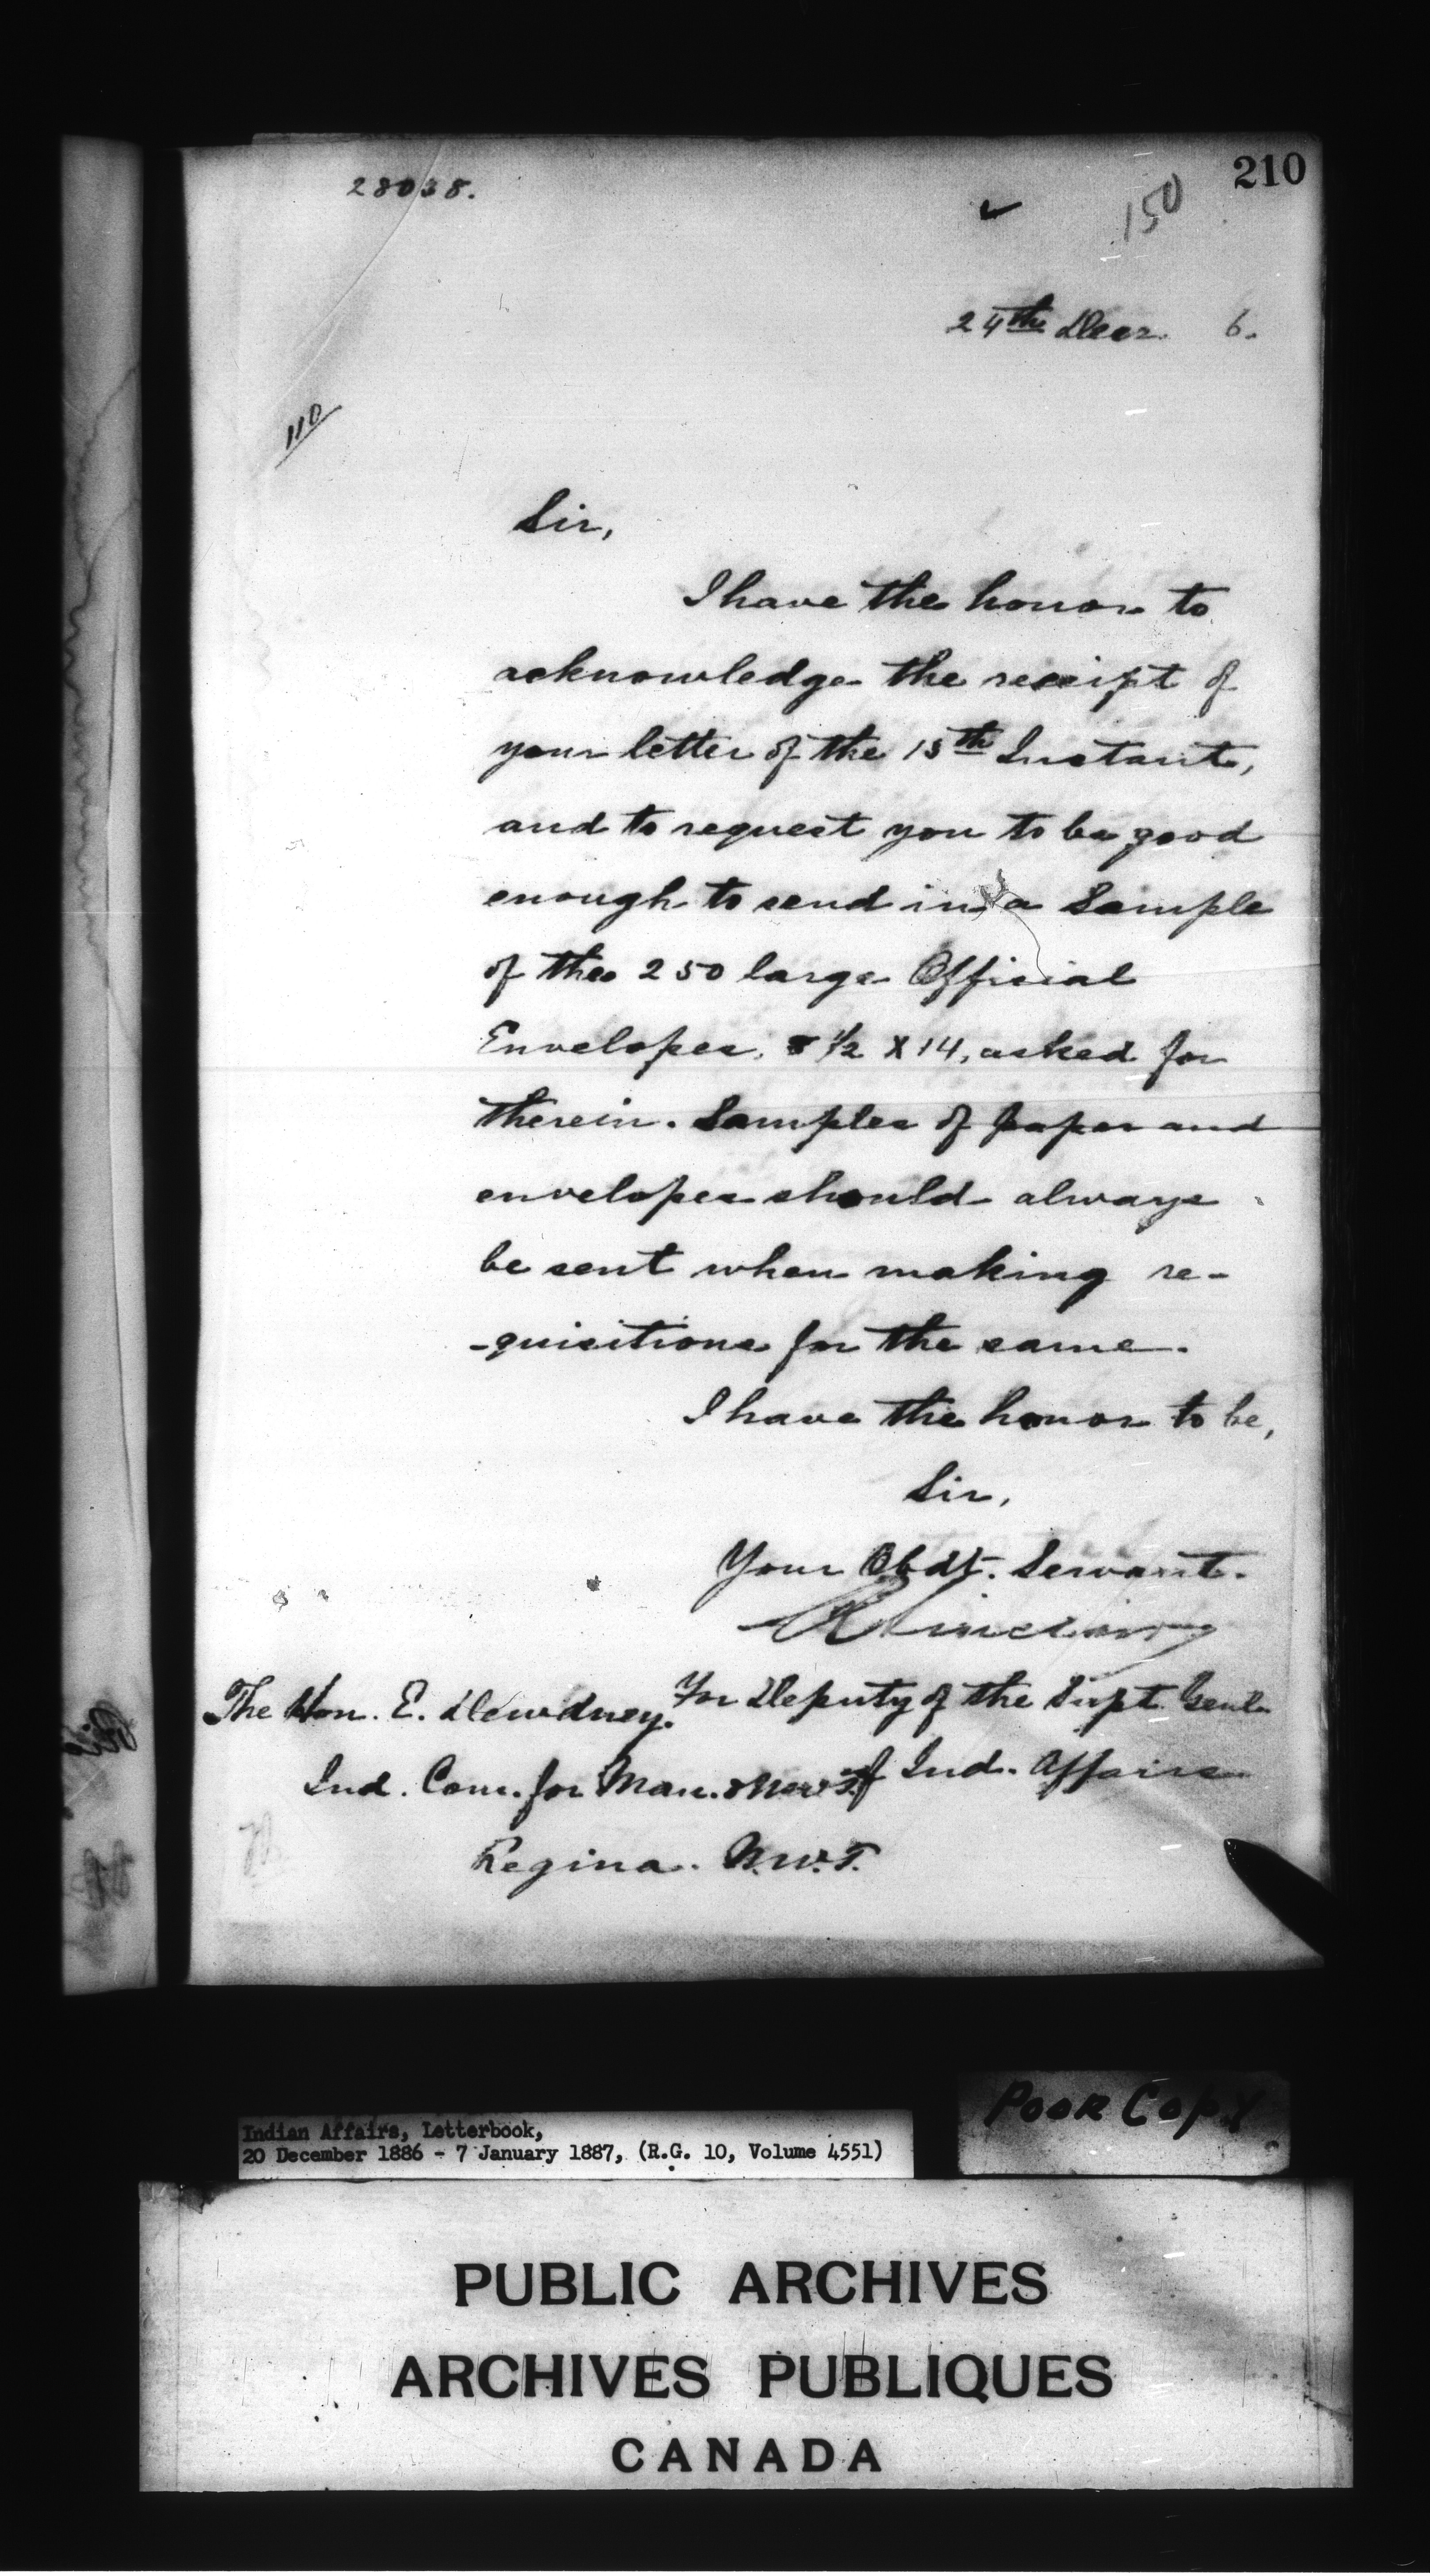 28038.
210
150
24th Decr. 6.
110
Sir,
I have the honor to
acknowledge the receipt of
your letter of the 15th Instant,
and to request you to be good
enough to send in a Sample
of the 250 large Official
Envelopes. 8 1/2 X 14, asked for
therein. Samples of paper and
envelopes should always
be sent when making re-
-quisitions for the same.
I have the honor to be,
Sir,
Your Obdt. Servant.
Sinclair
For Deputy of the Supt. Genl.
of Ind. Affairs
The Hon. E. Dewdney.
Ind. Com. for Man. & N.W.T.
Regina. N.W.T.
Poor Copy
Indian Affairs, Letterbook,
20 December 1886 - 7 January 1887, (R.G. 10, Volume 4551)
PUBLIC ARCHIVES
ARCHIVES PUBLIQUES
CANADA